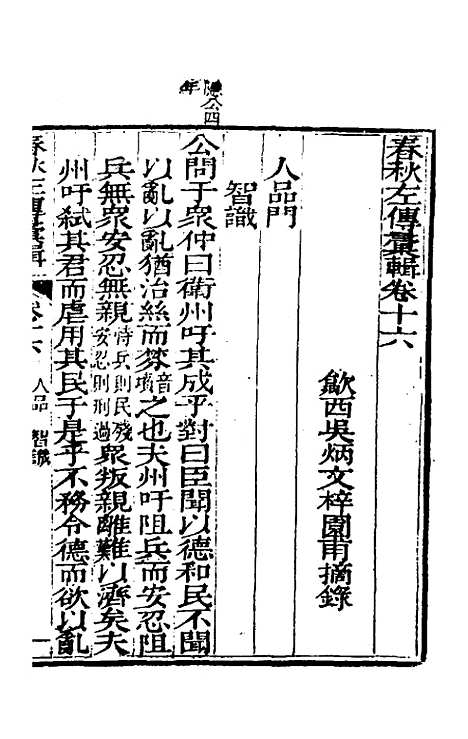 春秋左傳彙輯卷十六
歙西吳炳文梓園甫摘錄
人品門
智識
隱公四年
公問于衆仲曰衛州吁其成乎對曰臣聞以德和民不聞
以亂以亂猶治絲而棼音墳之也夫州吁阻兵而安忍阻
兵無衆安忍無親恃兵則民殘安忍則刑過衆叛親離難以濟矣夫
州吁弒其君而虐用其民于是乎不務令德而欲以亂
春秋左傳彙輯 卷十六 人品 智識 一